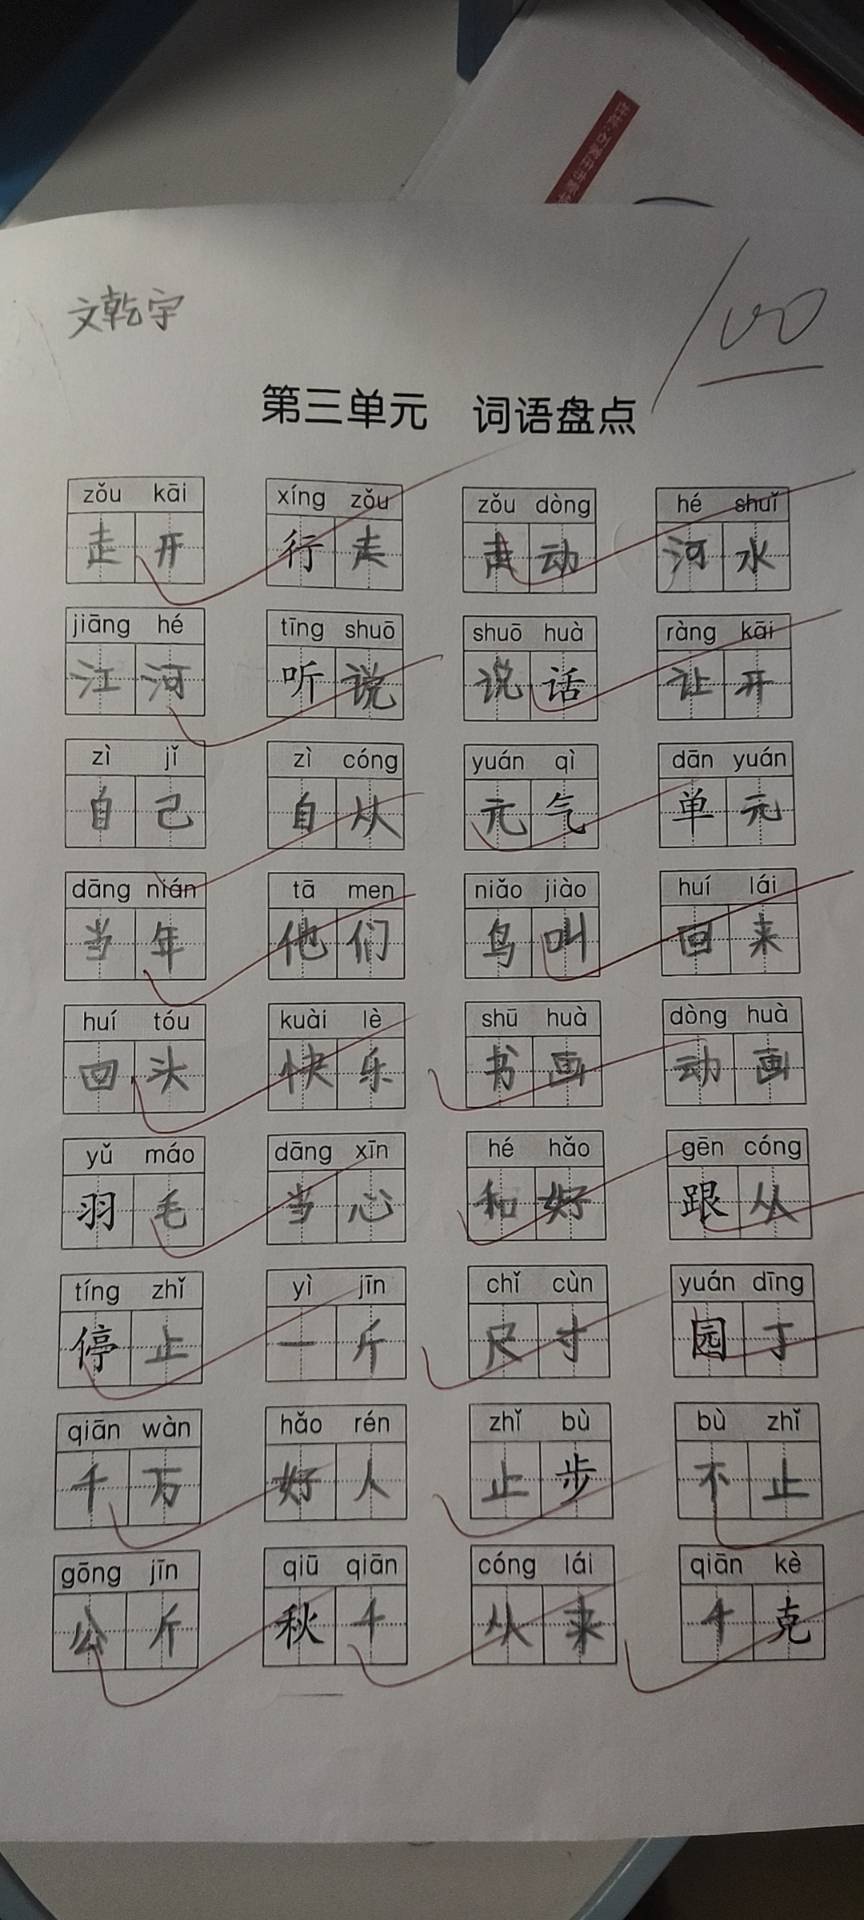 文乾宇
100
第三单元 词语盘点
zǒu kāi xíng zǒu zǒu dòng hé shuǐ
走开 行走 走动 河水
jiāng hé tīng shuō shuō huà ràng kāi
江河 听说 说话 让开
zì jǐ zì cóng yuán qì dān yuán
自己 自从 元气 单元
dāng nián tā men niǎo jiào huí lái
当年 他们 鸟叫 回来
huí tóu kuài lè shū huà dòng huà
回头 快乐 书画 动画
yǔ máo dāng xīn hé hǎo gēn cóng
羽毛 当心 和好 跟从
tíng zhǐ yì jīn chǐ cùn yuán dīng
停止 一斤 尺寸 园丁
qiān wàn hǎo rén zhǐ bù bù zhǐ
千万 好人 止步 不止
gōng jīn qiū qiān cóng lái qiān kè
公斤 秋千 从来 千克